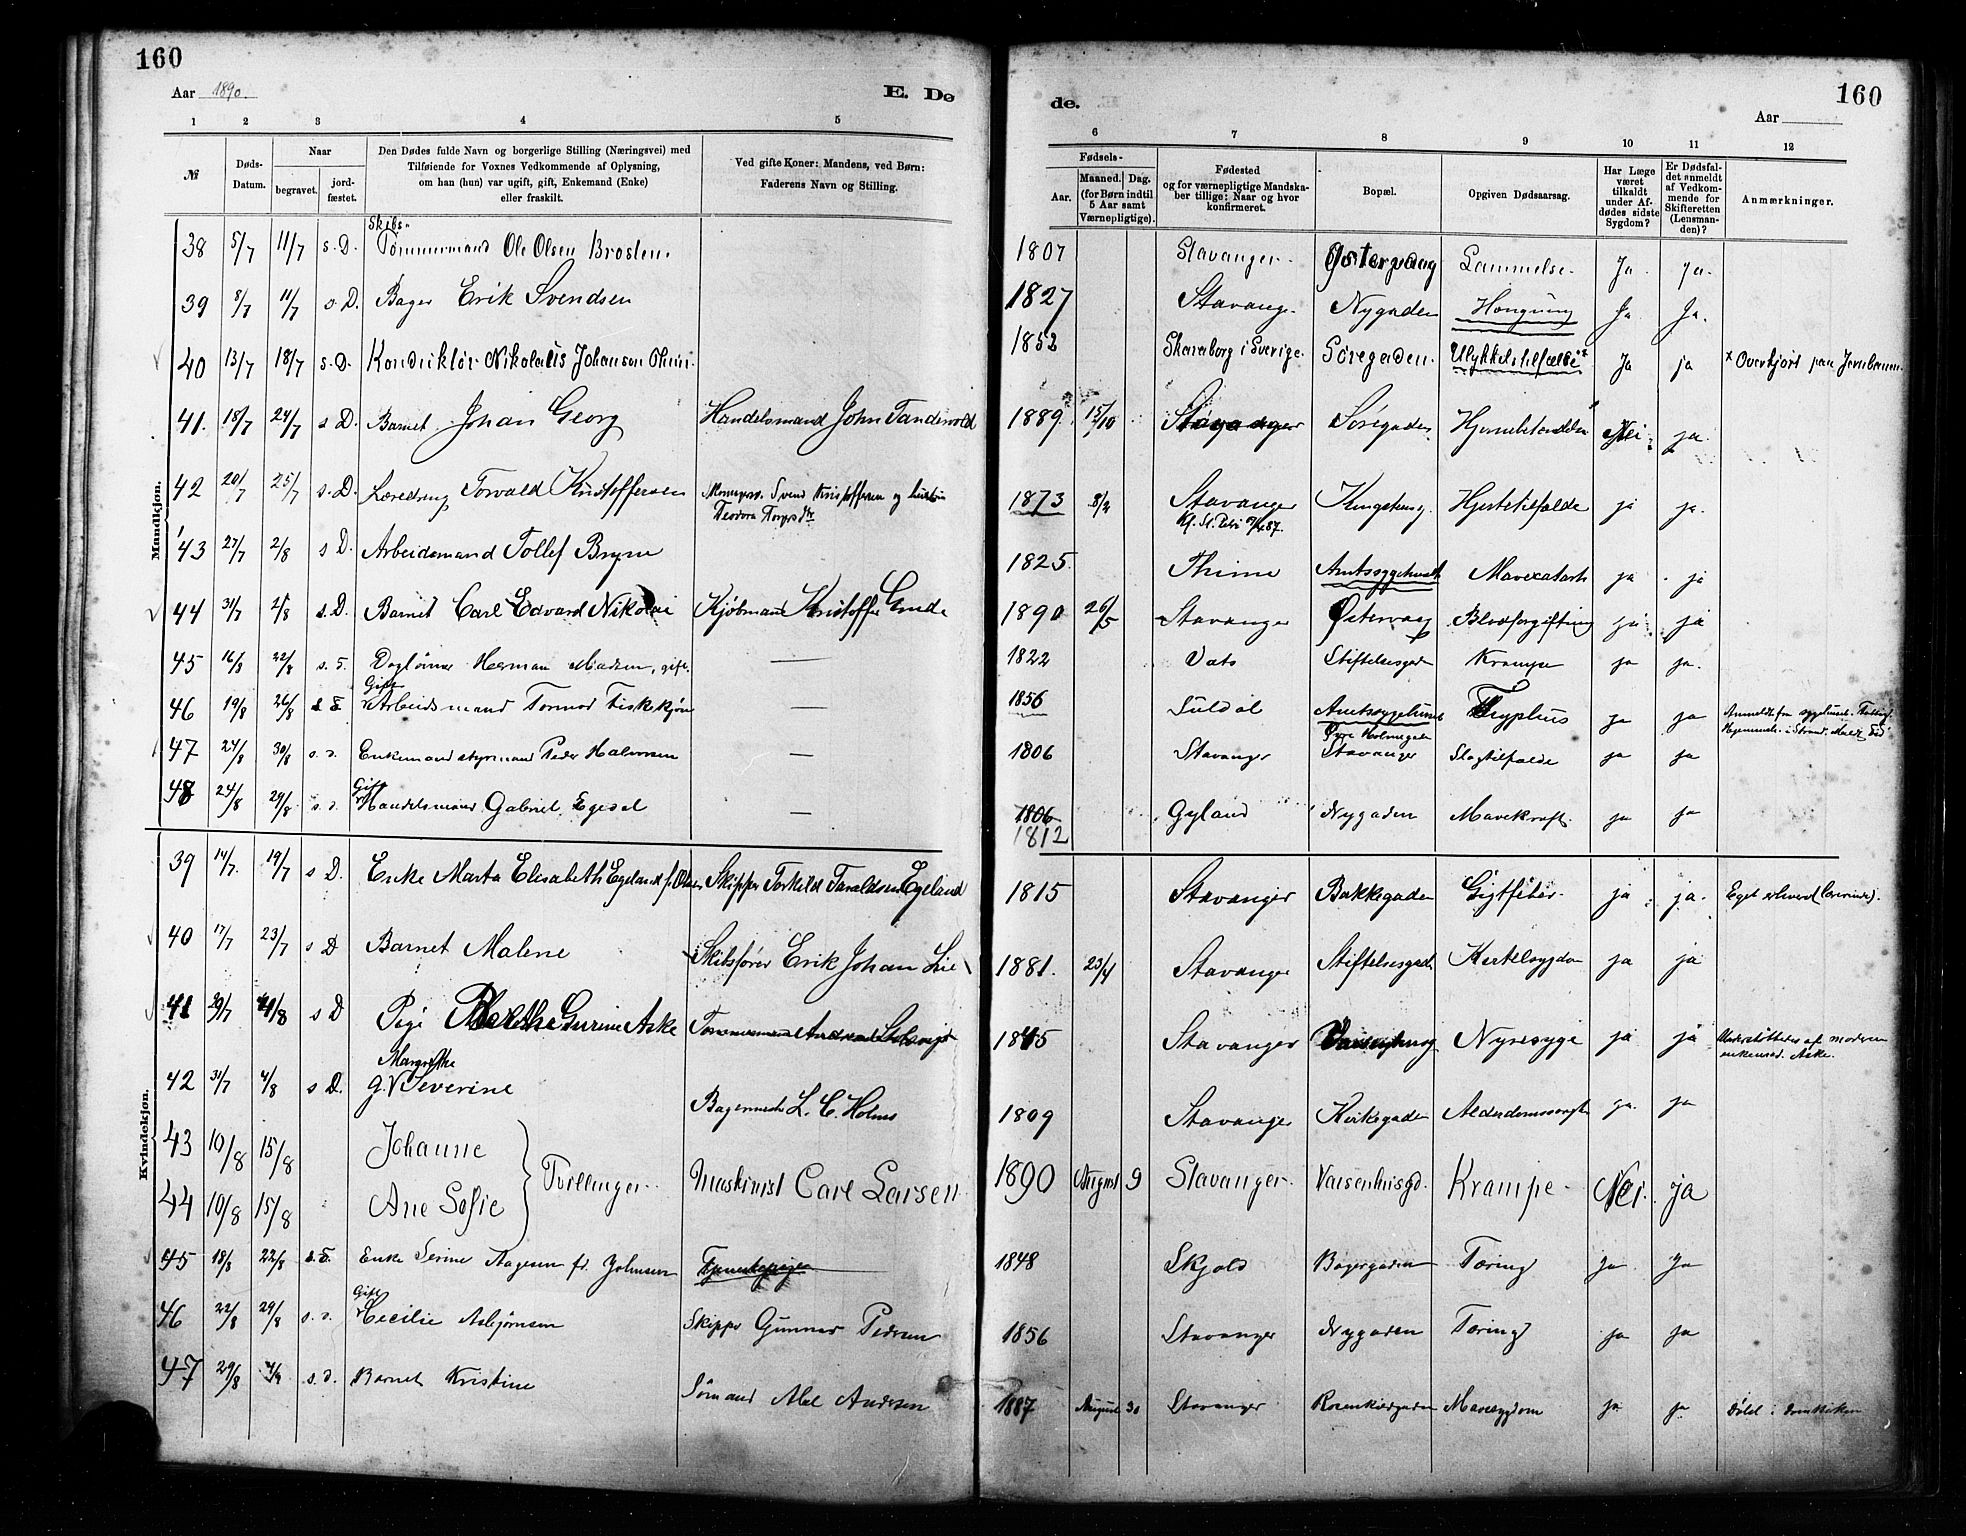 160
Aar 1890.
E. Dø
1 2 3 4 5
№
Døds-
Datum.
Naar
begravet.
jord-
fæstet.
Den Dødes fulde Navn og borgerlige Stilling (Næringsvei) med
Tilføiende for Voxnes Vedkommende af Oplysning,
om han (hun) var ugift, gift, Enkemand (Enke)
eller fraskilt.
Ved gifte Koner: Mandens, ved Børn:
Faderens Navn og Stilling.
Mandkjøn.
Skibs-
38 5/7 11/7 s. D. Tømmermand Ole Olsen Brosten.
39 8/7 11/7 s. D. Bager Erik Svendsen
40 13/7 18/7 s. D. Konduktør Nikolaus Johanson
41. 18/7 24/7 s D. Barnet Johan Georg Handelsmand John Tandevold
42 20/7 25/7 s. D. Læredreng Torvald Kristoffersen Svend Kristoffersen og hustru
Teodora
43 27/7 2/8 s D. Arbeidsmand Tollef Bryne
44 31/7 2/8 s. D. Barnet Carl Edvard Nikolai Kjøbmand Kristoffer Grude
45 16/8 22/8 s. Daglønner Herman Madsen, gift. —
Gift
46 19/8 26/8 Arbeidsmand Tormod Fiskekjøn —
47 24/8 30/8 s. Enkemand styrmand Peder Halvorsen —
Gift
48 24/8 29/8 s. Handelsmand Gabriel Egesal —
Kvindekjøn.
39 14/7 19/7 s D. Enke Marta Elisabeth Egeland f. Olsen Skipper Torkild Taraldsen Egeland
40 17/7 23/7 s D Barnet Malene Skibsfører Erik Johan Lie
41 29/7 s D Pige Berthe Gurine Aske
Margrethe
42 31/7 4/8 s D. g. Severine Bagermester L. C. Holms
43 10/8 15/8 Johanne
Tvillinger. Maskinist Carl Larsen
44 10/8 15/8 Ane Sofie
45 18/8 22/8 Enke Serine Aagesen fd. Johnsen
Gift
46 22/8 29/8 s. Cecilie Asbjørnsen Skipper Gunnar Pedersen
47 29/8 4/9 s. Barnet Kristine Sømand Abel Andersen
160
de.
Aar
6 7 8 9 10 11 12
Fødsels-
Aar.
Maaned. Dag.
(for Børn indtil
5 Aar samt
Værnepligtige).
Fødested
og for værnepligtige Mandska-
ber tillige: Naar og hvor
konfirmeret.
Bopæl.
Opgiven Dødsaarsag.
Har Læge
været
tilkaldt
under Af-
dødes sidste
Sygdom?
Er Dødsfal-
det anmeldt
af Vedkom-
mende for
Skifteretten
(Lensman-
den)?
Anmærkninger.
1807 Stavanger. Østervaag Lammelse. Ja ja.
1827 Stavanger Nygaden Hængning Ja Ja.
1852 Skaraborg i Sverige. Søregaden. Ulykkelstilfælde x Ja ja x Overkjørt paa Jernbanen.
1889. 15/10 Stavanger Søregaden Hjernebetændelse Nei ja.
1873 8/2 Stavanger Kongsteng. Hjertetilfælde ja ja.
1825. Thime Amtssygehuset Mavecatarh ja ja
1890 26/5 Stavanger Østervaag Blodforgiftning ja ja
1822 Vats Stiftelsesgaden Krampe ja ja.
1856 Suldal Amtssygehuset Typhus ja ja
Øvre Holmegade
1806 Stavanger Stavanger Slagtilfælde ja ja
1806
1812 Gyland Nygaden Mavekræft. ja ja
1815 Stavanger Bakkegaden Gigtfeber. ja ja. Eget erhverv
1881. 23/4 Stavanger Stiftelsesgade Kirtelsygdom ja ja
1845 Stavanger Nyresyge ja ja Understøttedes af moderen
Aske.
1809 Stavanger Kirkegaden Alderdomssvaghed ja. ja
1890 August 9 Stavanger. Vaisenhusgd. Krampe - Nei. ja
1848 Skjold Bagergaden Tæring ja Ja
1856 Stavanger Nygaden Tæring ja ja
1887 August 30 Stavanger Rosenkildegaden Mavesygdom ja ja